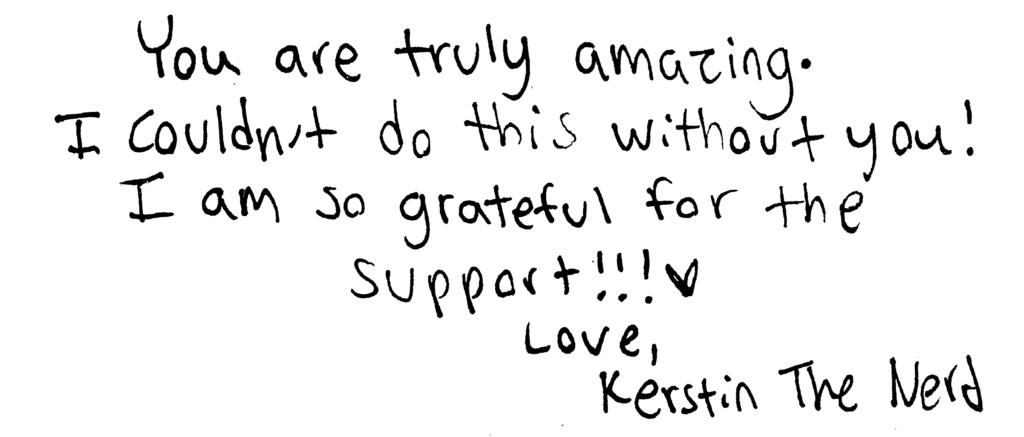 You are truly amazing.
I couldn't do this without you!
I am so grateful for the
support!!!♥
Love,
Kerstin The Nerd